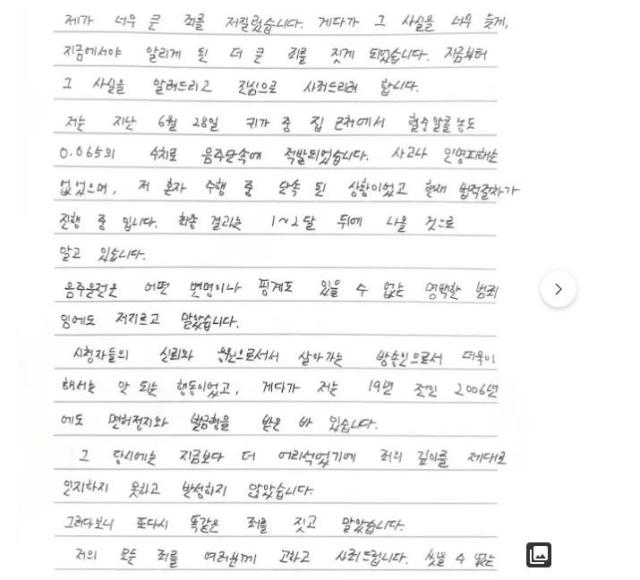 제가 너무 큰 죄를 저질렀습니다. 게다가 그 사실을 너무 늦게,
지금에서야 알리게 된 더 큰 죄를 짓게 되었습니다. 지금부터
그 사실을 알려드리고 진심으로 사죄드리려 합니다.
저는 지난 6월 28일 귀가 중 집 근처에서 혈중알콜농도
0.065의 수치로 음주단속에 적발되었습니다. 사고나 인명피해는
없었으며, 저 혼자 주행 중 단속 된 상황이었고 현재 법적절차가
진행 중 입니다. 최종 결과는 1~2달 뒤에 나올 것으로
알고 있습니다.
음주운전은 어떤 변명이나 핑계도 있을 수 없는 명백한 범죄
임에도 저지르고 말았습니다.
시청자들의 신뢰와 응원으로서서 살아가는 방송인으로서 더욱이
해서는 안 되는 행동이었고, 게다가 저는 19년 전인 2006년
에도 면허정지와 벌금형을 받은 바 있습니다.
그 당시에는 지금보다 더 어리석었기에 죄의 깊이를 제대로
인지하지 못하고 반성하지 않았습니다.
그러다보니 또다시 똑같은 죄를 짓고 말았습니다.
저의 모든 죄를 여러분께 고하고 사죄드립니다. 씻을 수 없는